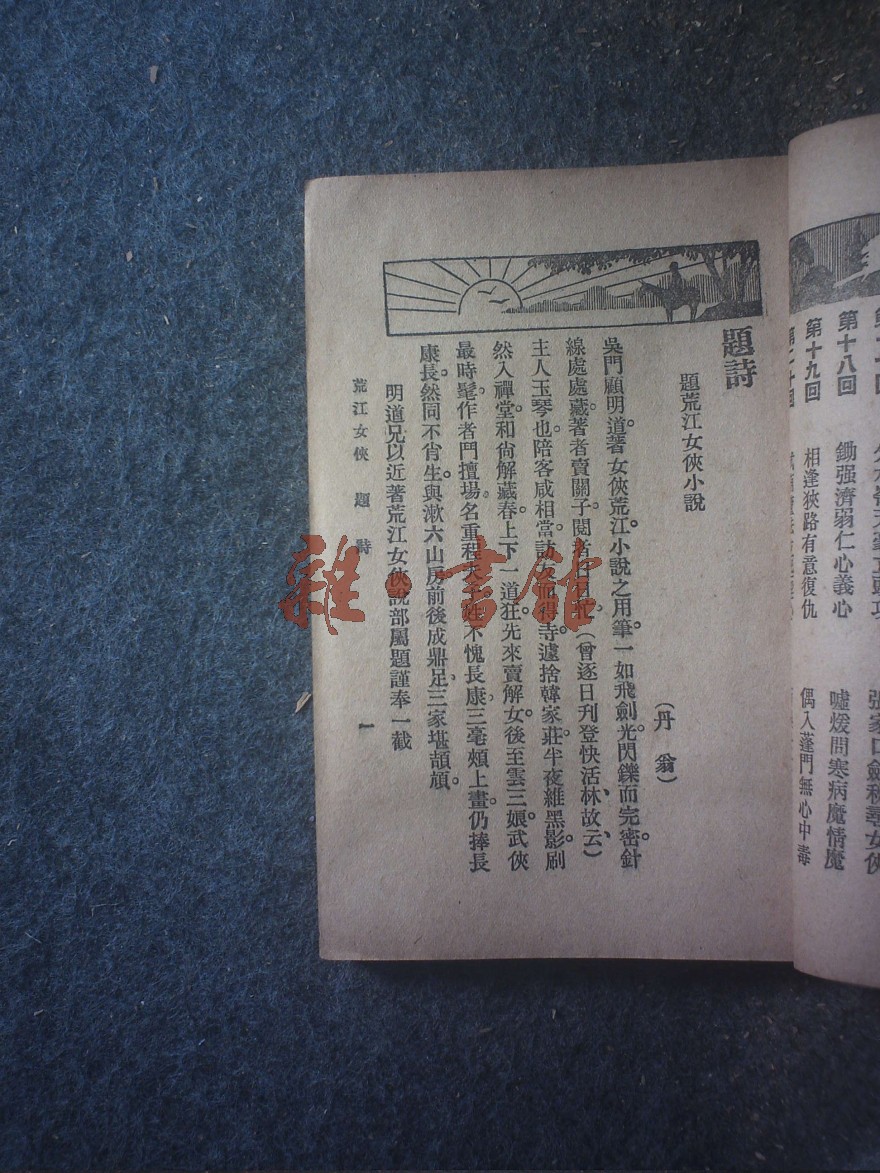 第十八回 鋤强濟弱仁心義心 噓煖問寒病魔情魔
第十九回 相逢狹路有意復仇 偶入蓬門無心中毒
題詩
題荒江女俠小說
(丹翁)
吳門顧明道。著女俠荒江。小說之用筆。一如飛劍光。閃鑠而完密。針
線處處藏。著者賣關子。閱者日(曾逐日刊登快活林、故云、)
主人玉琴也。陪客咸相當。訪友寺。遽捨韓家莊。半夜維黑影。刷
然入禪堂。和尙解藏春。上下一道狂。先來賣解女。後至雲三娘。武俠
最時髦。作者門擅場。名重程不愧長康。三毫頰上畫。仍捧長
康長。然同不肖生。與漱六山房。前後成鼎足。三家堪頡頏。
明道兄以近著荒江女俠說部屬題謹奉一截
荒江女俠 題詩 一
雜·書館